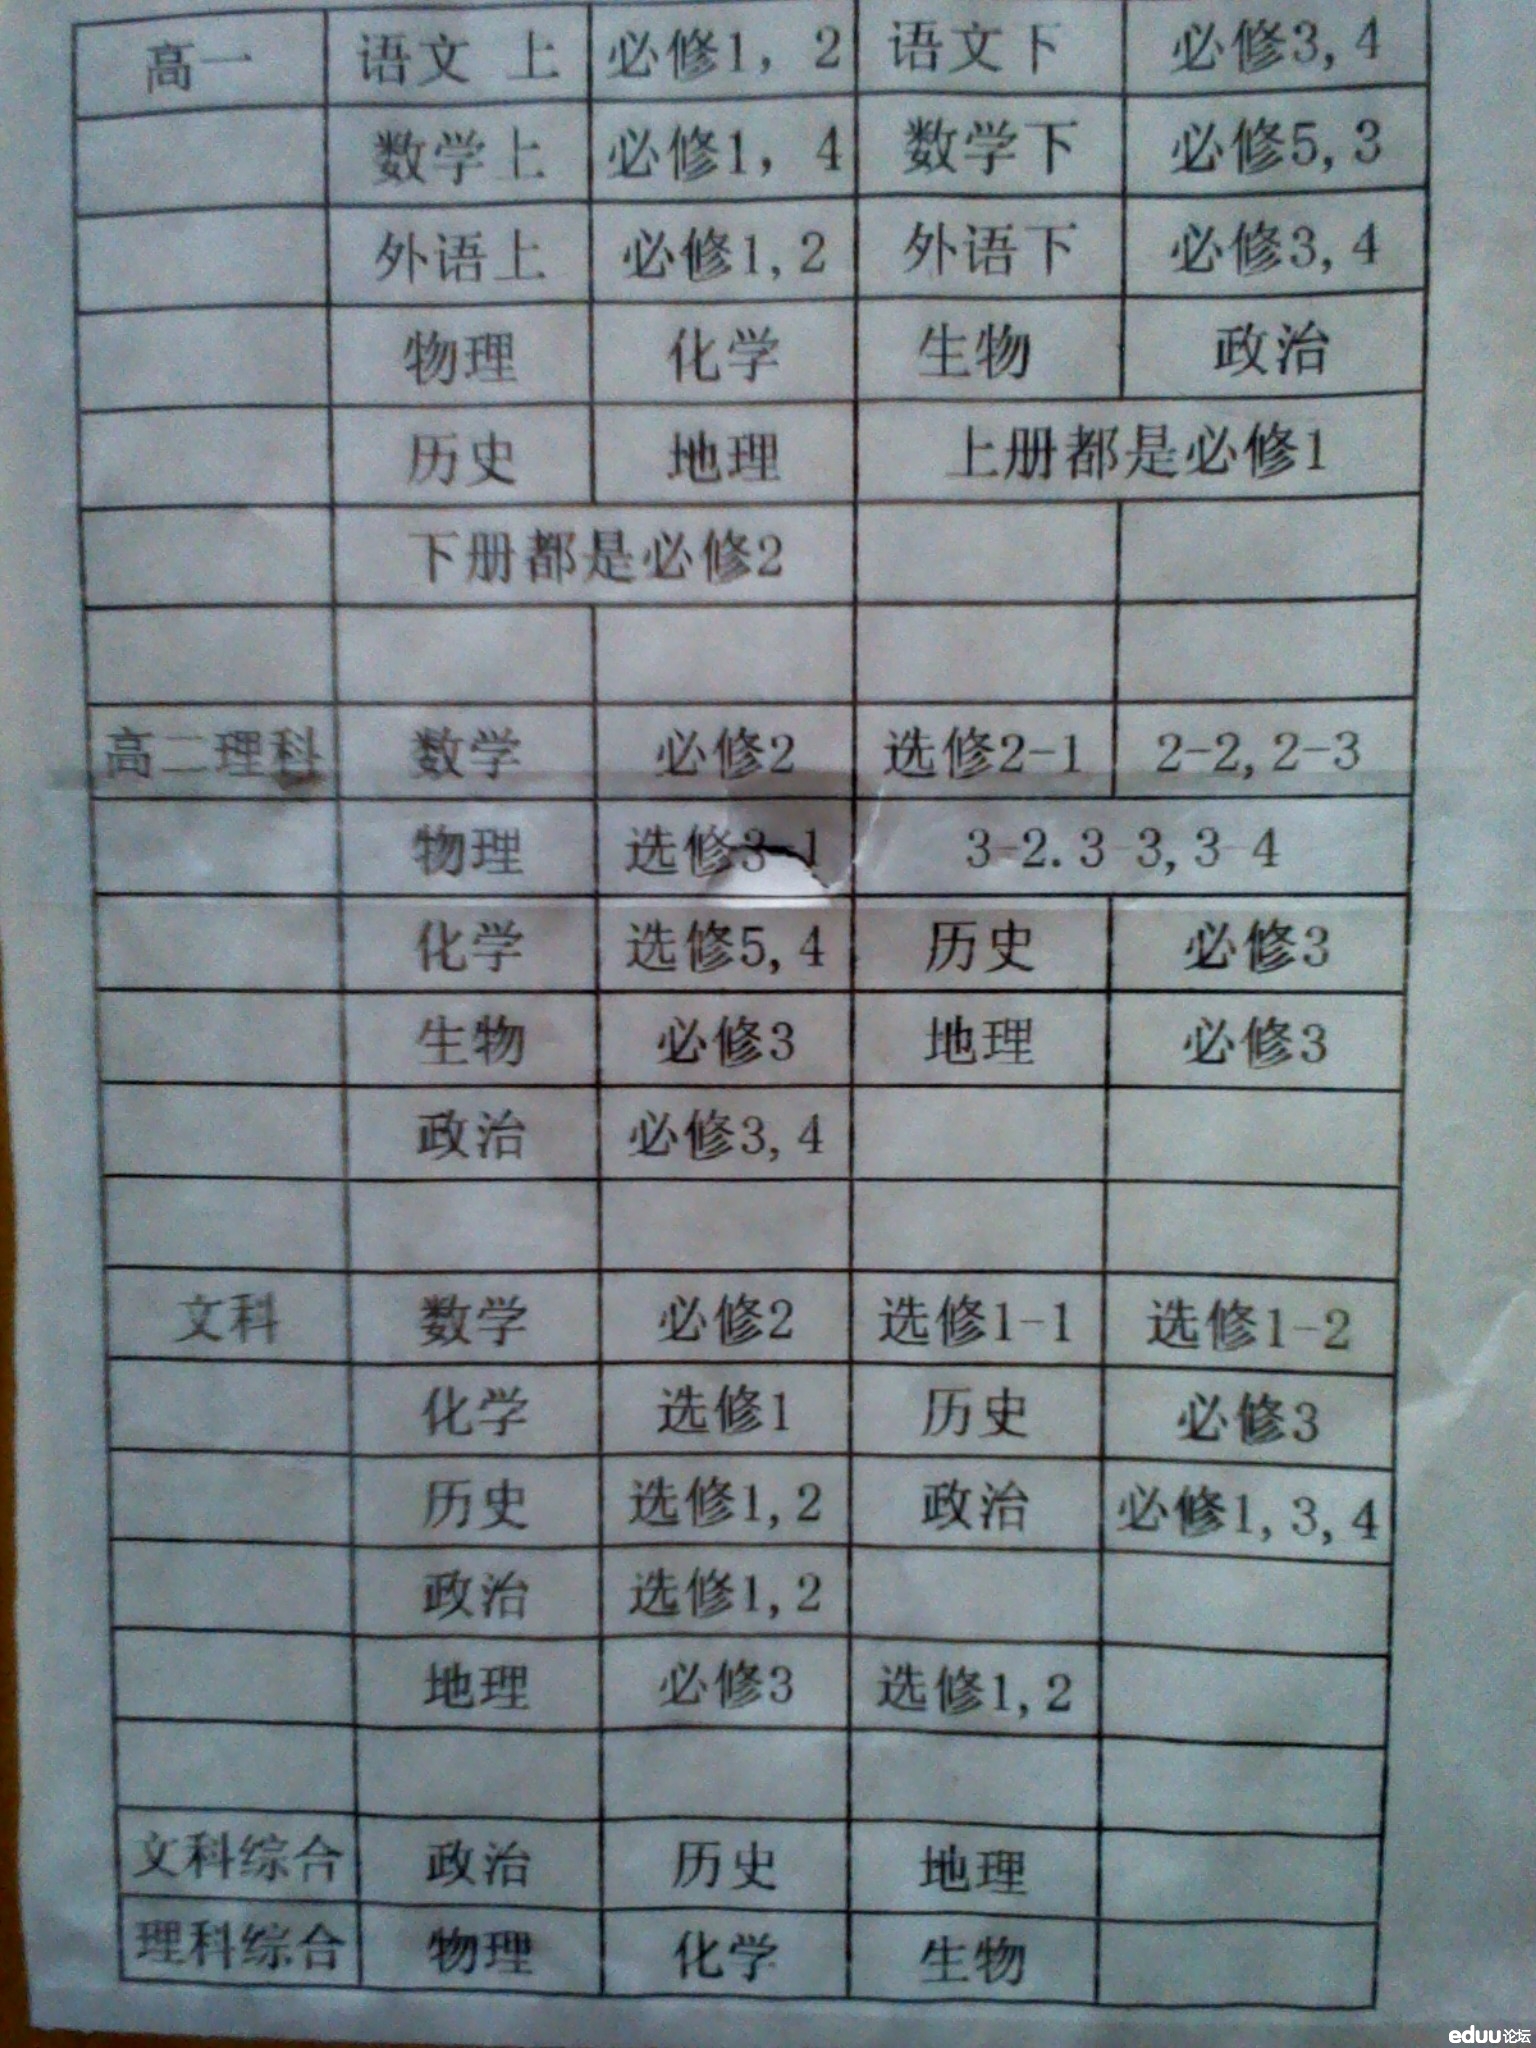 高一 语文 上 必修1，2 语文下 必修3,4
数学上 必修1，4 数学下 必修5,3
外语上 必修1,2 外语下 必修3,4
物理 化学 生物 政治
历史 地理 上册都是必修1
下册都是必修2
高二理科 数学 必修2 选修2-1 2-2,2-3
物理 选修3-1 3-2.3-3,3-4
化学 选修5,4 历史 必修3
生物 必修3 地理 必修3
政治 必修3,4
文科 数学 必修2 选修1-1 选修1-2
化学 选修1 历史 必修3
历史 选修1,2 政治 必修1,3,4
政治 选修1,2
地理 必修3 选修1,2
文科综合 政治 历史 地理
理科综合 物理 化学 生物
eduu论坛